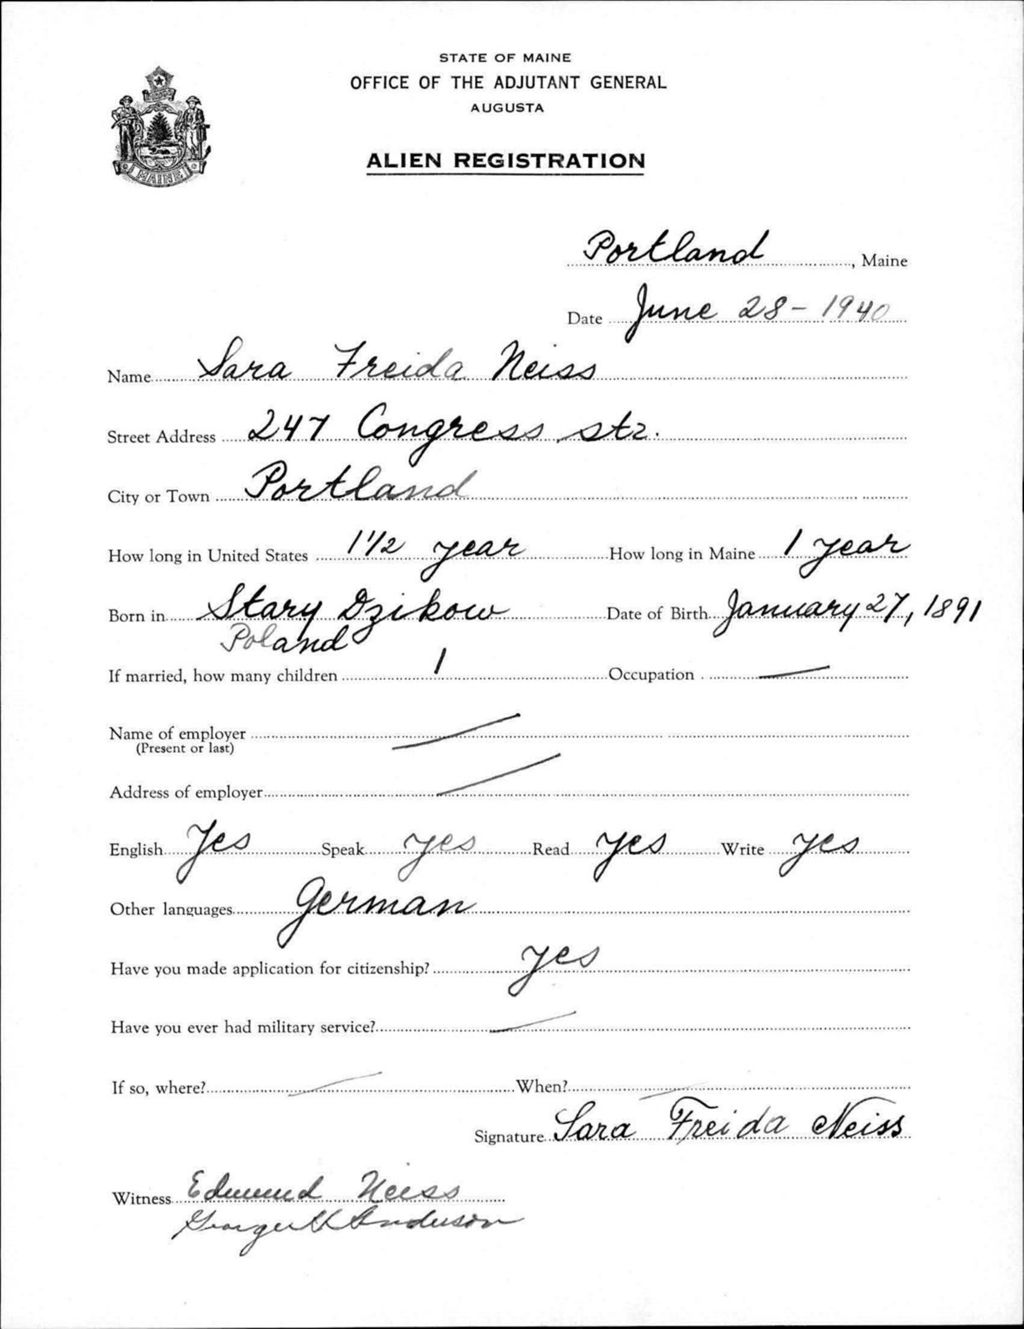 STATE OF MAINE
OFFICE OF THE ADJUTANT GENERAL
AUGUSTA
ALIEN REGISTRATION
MAINE
Portland, Maine
Date June 28-1940
Name Sara Freida Neiss
Street Address 247 Congress str.
City or Town Portland
How long in United States 1 1/2 year How long in Maine 1 year
Born in Stary Dzikow Date of Birth January 27, 1891
Poland
If married, how many children 1 Occupation —
Name of employer —
(Present or last)
Address of employer —
English Yes Speak yes Read yes Write yes
Other languages German
Have you made application for citizenship? yes
Have you ever had military service? —
If so, where? — When? —
Signature Sara Freida Neiss
Witness Edmund Neiss
George Anderson